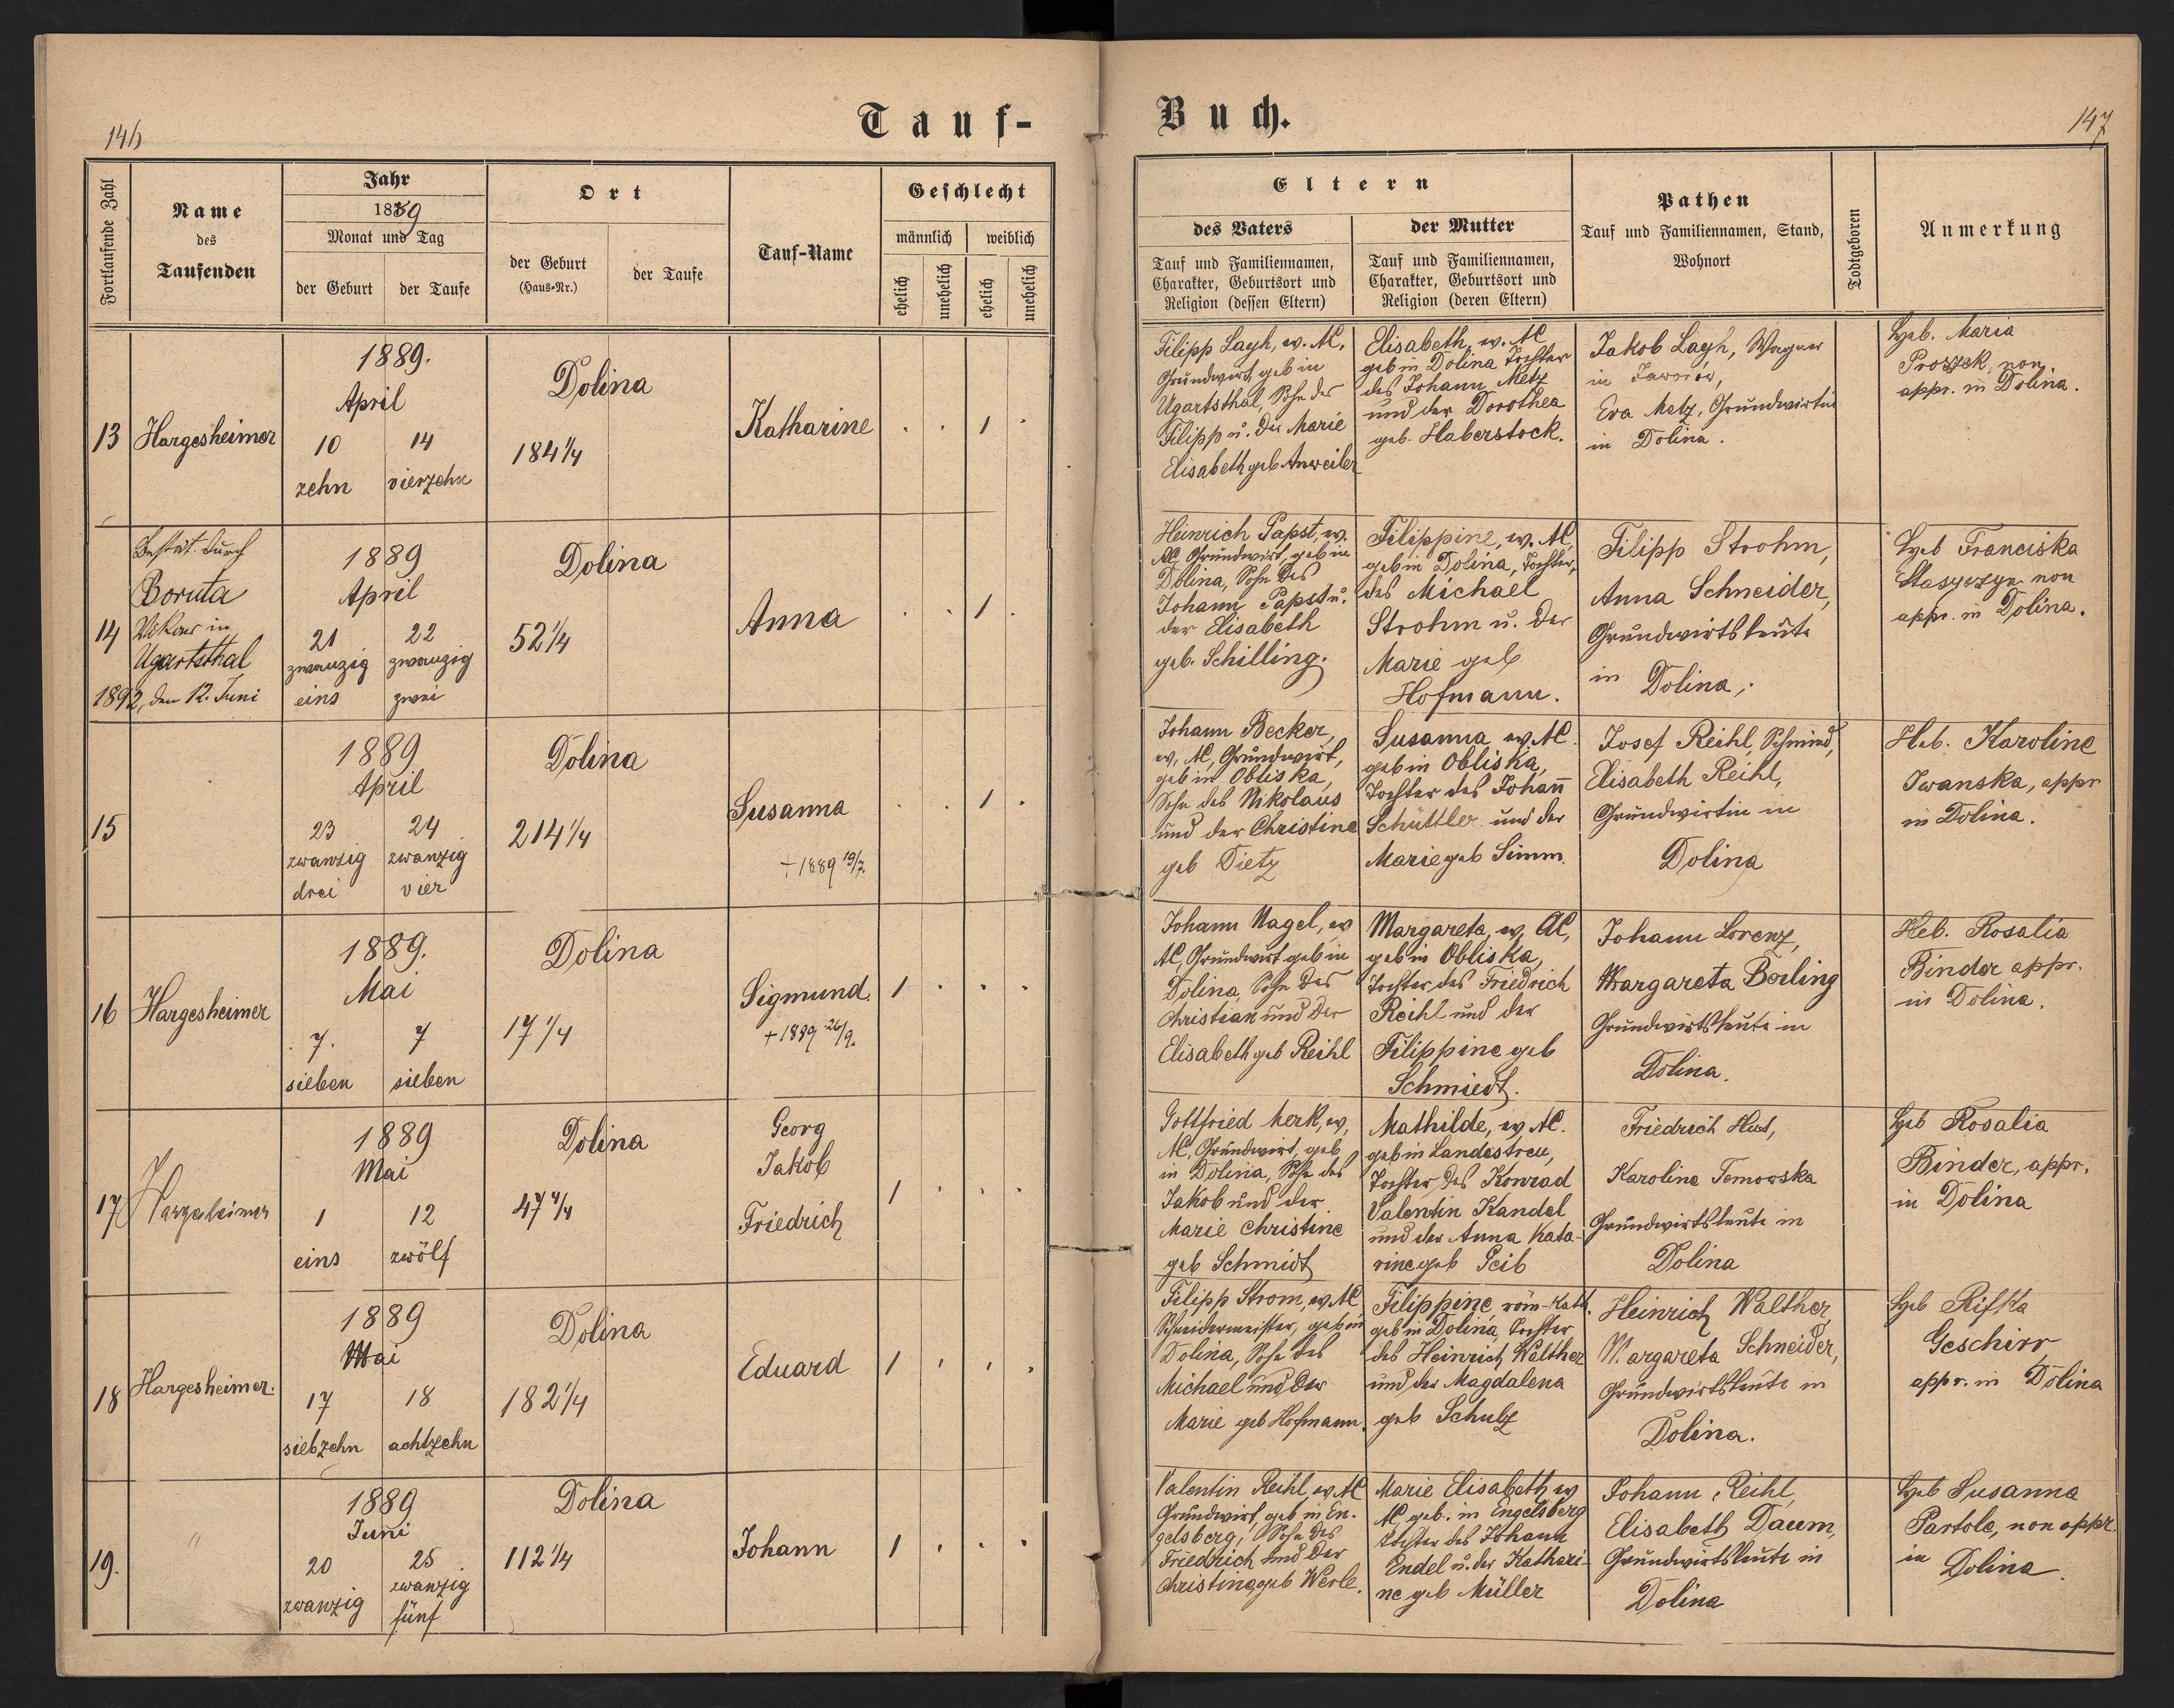 Tauf-
Buch.
146
147
Fortlaufende Zahl
Name
des
Taufenden
Jahr
1889
Monat und Tag
der Geburt
der Taufe
Ort
der Geburt
(Haus-Nr.)
der Taufe
Tauf-Name
Geschlecht
männlich
weiblich
ehelich
unehelich
ehelich
unehelich
Eltern
des Vaters
Tauf und Familiennamen,
Charakter, Geburtsort und
Religion (dessen Eltern)
der Mutter
Tauf und Familiennamen,
Charakter, Geburtsort und
Religion (deren Eltern)
Pathen
Tauf und Familiennamen, Stand,
Wohnort
Todtgeboren
Anmerkung
13
Hargesheimer
1889.
April
10
zehn
14
vierzehn
Dolina
184 1/4
Katharine
1
Filipp Layh, ev. AC,
Grundwirt, geb in
Ugartsthal, Sohn des
Filipp u. der Marie
Elisabeth geb Anweiler
Elisabeth, ev. AC
geb in Dolina Tochter
des Johann Metz
und der Dorothea
geb. Haberstock.
Jakob Layh, Wagner
in Jaworów,
Eva Metz, Grundwirtin
in Dolina.
Heb. Maria
Proszek, non
appr. in Dolina.
14
Bestät. durch
Boruta
Vikar in
Ugartsthal
1892, den 12. Juni
1889
April
21
zwanzig
eins
22
zwanzig
zwei
Dolina
52 1/4
Anna
1
Heinrich Papst, ev.
AC, Grundwirt, geb in
Dolina, Sohn des
Johann Papst u.
der Elisabeth
geb. Schilling.
Filippine, ev. AC,
geb in Dolina, Tochter,
des Michael
Strohm u. der
Marie geb
Hofmann.
Filipp Strohm,
Anna Schneider,
Grundwirtsleute
in Dolina,.
Heb Franciska
Stasyszyn non
appr. in Dolina.
15
1889
April
23
zwanzig
drei
24
zwanzig
vier
Dolina
214 1/4
Susanna
+1889 19/7.
1
Johann Becker,
ev, AC, Grundwirt,
geb in Obliska,
Sohn des Nikolaus
und der Christine
geb Dietz
Susanna ev. AC.
geb in Obliska,
Tochter des Johann
Schüttler und der
Marie geb Simm.
Josef Reihl, Schmied,
Elisabeth Reihl,
Grundwirtin in
Dolina
Heb. Karoline
Iwanska, appr
in Dolina.
16
Hargesheimer
1889.
Mai
7.
sieben
7
sieben
Dolina
17 1/4
Sigmund.
+1889 26/9.
1
Johann Nagel, ev
AC, Grundwirt geb in
Dolina, Sohn des
Christian und der
Elisabeth geb Reihl
Margareta, ev, AC,
geb in Obliska,
Tochter des Friedrich
Reihl und der
Filippine geb
Schmiedt.
Johann Lorenz,
Margareta Berling
Grundwirtsleute in
Dolina.
Heb. Rosalia
Binder appr.
in Dolina.
17
Hargesheimer
1889
Mai
1
eins
12
zwölf
Dolina
47 4/4
Georg
Jakob
Friedrich
1
Gottfried Merk, ev,
AC, Grundwirt, geb
in Dolina, Sohn des
Jakob und der
Marie Christine
geb Schmidt
Mathilde, ev, AC.
geb in Landestreu,
Tochter des Konrad
Valentin Kandel
und der Anna Kata-
rine geb Peib
Friedrich
Karolina Temowska
Grundwirtsleute in
Dolina
Heb Rosalia
Binder, appr.
in Dolina
18
Hargesheimer.
1889
Mai
17
siebzehn
18
achtzehn
Dolina
182 1/4
Eduard
1
Filipp Strom, ev. AC
Schneidermeister, geb in
Dolina, Sohn des
Michael und der
Marie geb Hofmann.
Filippine, röm-kath.
geb in Dolina, Tochter
des Heinrich Walther
und der Magdalena
geb Schulz
Heinrich Walther,
Margareta Schneider,
Grundwirtsleute in
Dolina.
Heb Rifka
Geschirr
appr. in Dolina
19.
"
1889
Juni
20
zwanzig
25
zwanzig
fünf
Dolina
112 1/4
Johann
1
Valentin Reihl, ev. AC
Grundwirt, geb in En-
gelsberg, Sohn des
Friedrich und der
Christine geb Werle.
Marie Elisabeth ev
AC, geb. in Engelsberg
Tochter des Johann
Endel u. der Kathari-
ne geb Müller
Johann Reihl,
Elisabeth Daum,
Grundwirtsleute in
Dolina
Heb Susanna
Partole, non appr.
in Dolina.